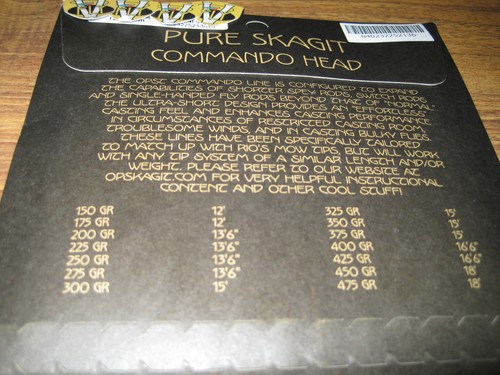 040232252136
PURE SKAGIT
COMMANDO HEAD
THE OPST COMMANDO LINE IS CONFIGURED TO EXPAND
THE CAPABILITIES OF SHORTER SPEY RODS, SWITCH RODS,
AND SINGLE-HANDED FLY RODS BEYOND THAT OF "NORMAL."
THE ULTRA-SHORT DESIGN PROVIDES AN "EFFORTLESS"
CASTING FEEL AND ENHANCES CASTING PERFORMANCE
IN CIRCUMSTANCES OF RESTRICTED CASTING ROOM,
TROUBLESOME WINDS, AND IN CASTING BULKY FLIES.
THESE LINES HAVE BEEN SPECIFICALLY TAILORED
TO MATCH UP WITH RIO'S MOW TIPS, BUT WILL WORK
WITH ANY TIP SYSTEM OF A SIMILAR LENGTH AND/OR
WEIGHT. PLEASE REFER TO OUR WEBSITE AT
OPSKAGIT.COM FOR VERY HELPFUL INSTRUCTIONAL
CONTENT AND OTHER COOL STUFF!
150 GR 12' 325 GR 15'
175 GR 12' 350 GR 15'
200 GR 13'6" 375 GR 15'
225 GR 13'6" 400 GR 16'6"
250 GR 13'6" 425 GR 16'6"
275 GR 13'6" 450 GR 18'
300 GR 15' 475 GR 18'